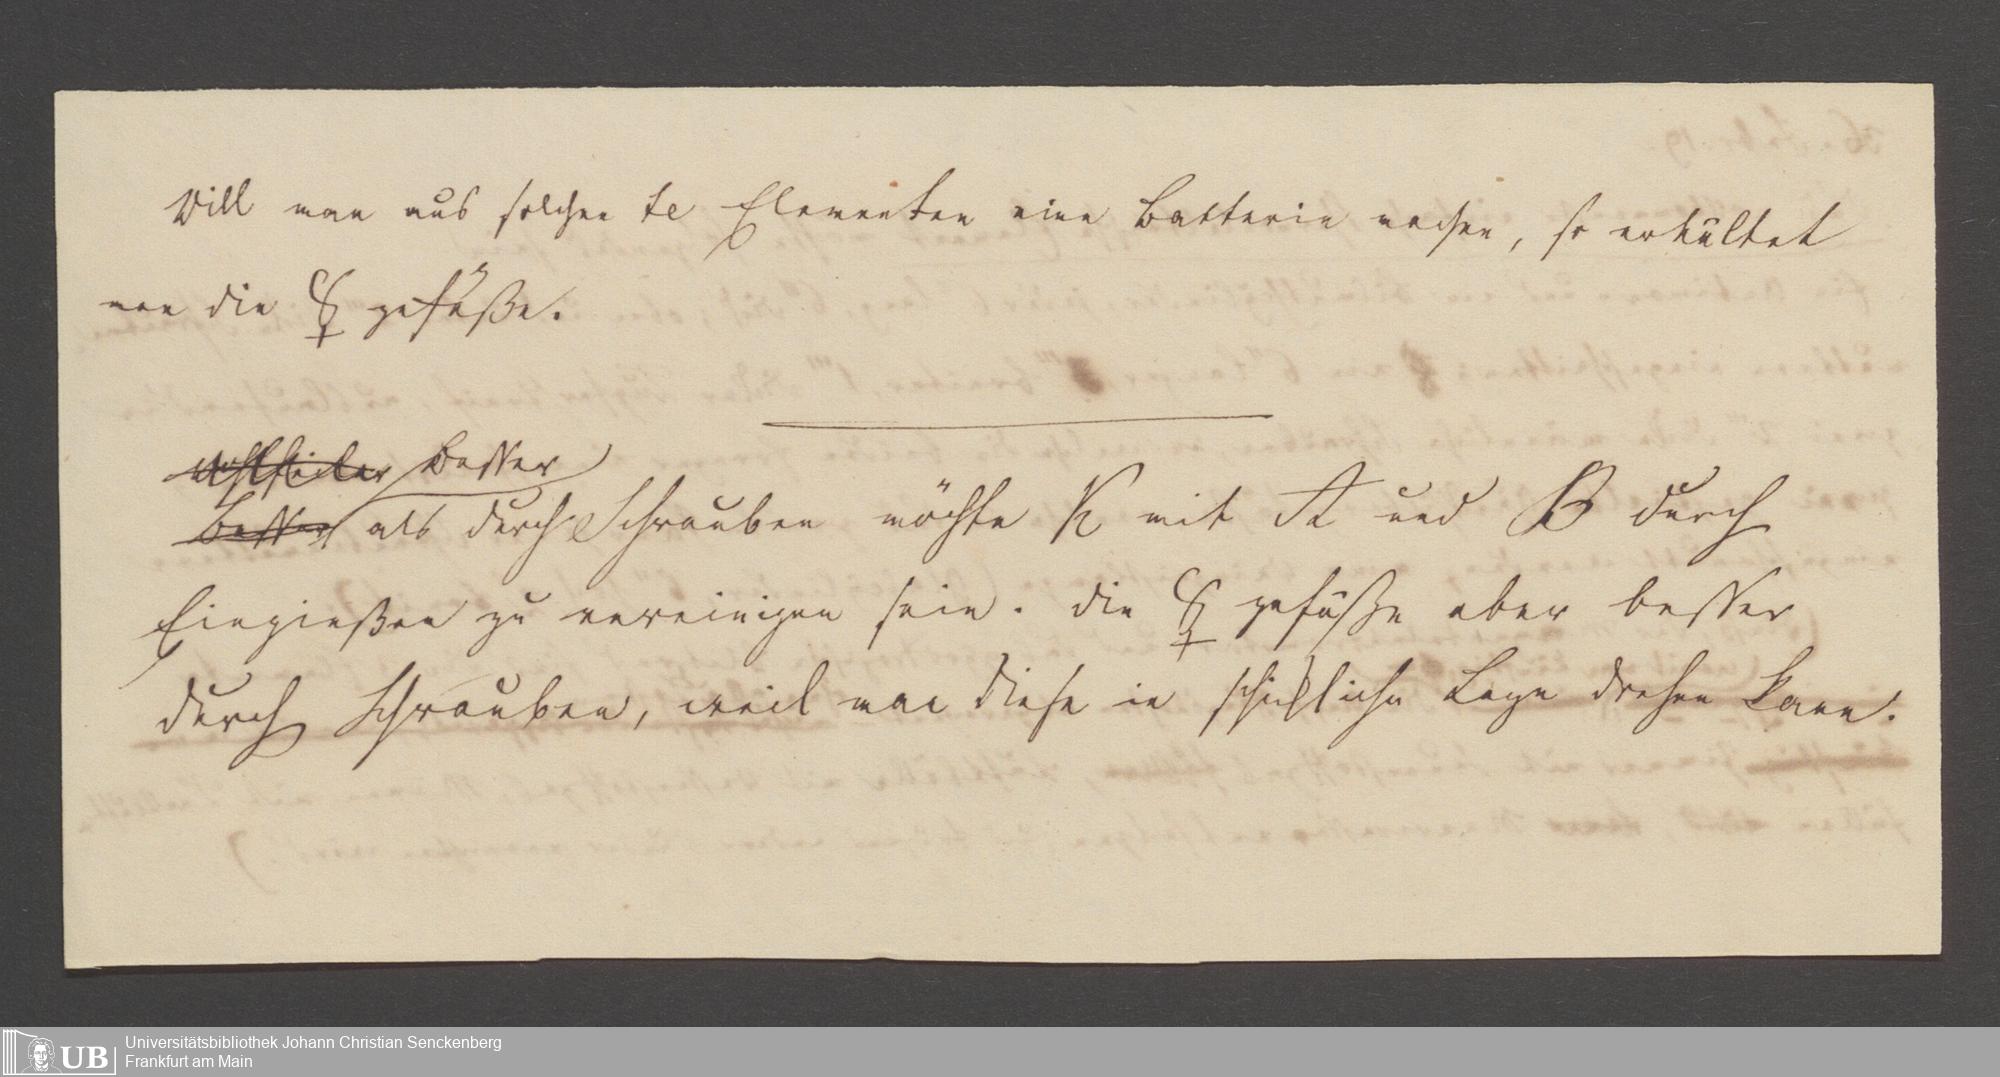 Will man aus solchen te Elementen eine Batterie machen, so erkältet
man die ☿ gefäße.
wohlfeiler besser
besser als durch Schrauben möchte K mit A und B durch
Eingießen zu vereinigen sein. die ☿ gefäße aber besser
durch Schrauben, weil man diese in schickliche Lage drehen kann.
UB
Universitätsbibliothek Johann Christian Senckenberg
Frankfurt am Main